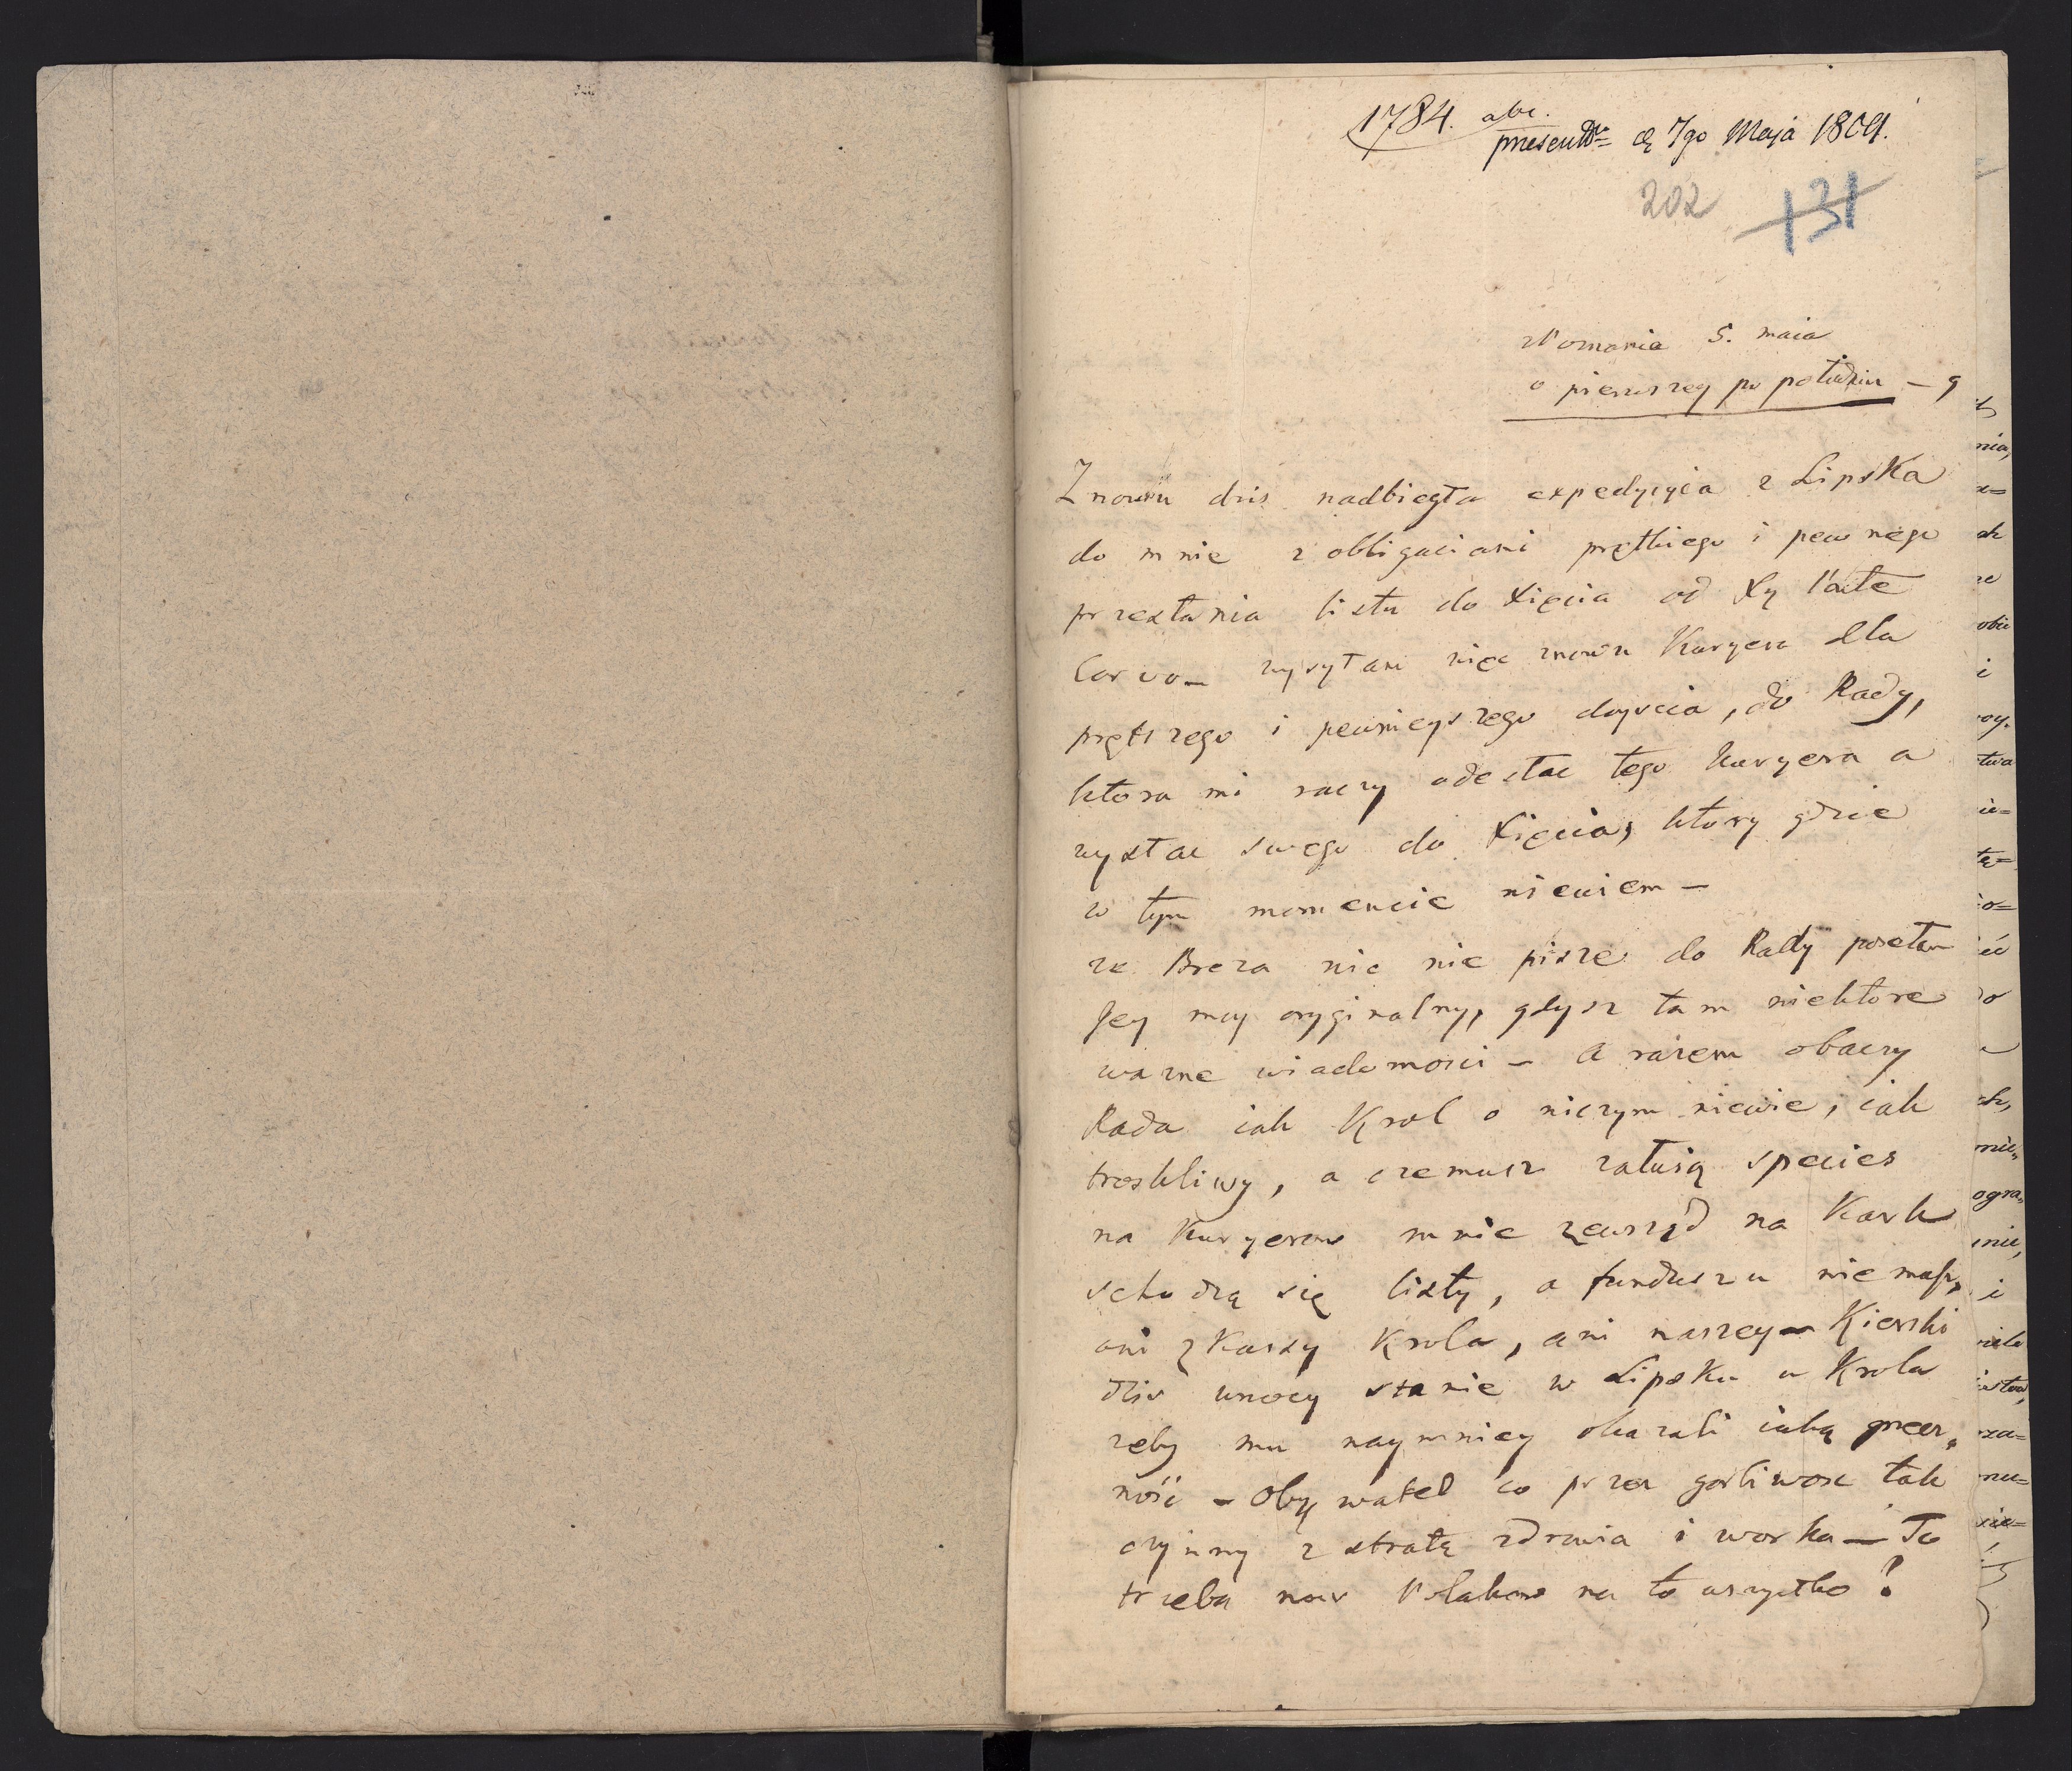 1784. abc.
presentt: d. 7go Maja 1809.
202 131
z Poznania 5. maia
o pierwszey po południu — 9
Znowu dzis nadbiegła expedycyia z Lipska
do mnie z obligaciami prętkiego i pewnego
przesłania listu do Xięcia od Xcy Ponte
Corvo — wysyłam więc znowu Kuryera dla
prętszego i pewnieyszego doyscia, do Rady,
ktora mi raczy odesłac tego kuryera a
wysłac swego do Xięcia, ktory gdzie
w tym momencie niewiem —
ze Breza nic nie pisze do Rady posełam
Jey moy oryginalny, gdysz tam niektore
wazne wiadomosci — a razem obaczy
Rada iak Krol o niczym niewie, iak
troskliwy, a czemusz załuią species
na Kuryerow mnie zewsząd na Kark
schodzą się listy, a funduszu niemasz,
ani z Kassy Krola, ani naszey — Kierski
dzis wnocy stanie w Lipsku u Krola
zeby mu naymniey okazali iaką grzecz„
nośc — Obywatel co przez gorliwosc tak
czynny z stratą zdrowia i worka — To
trzeba nas Polakow na to wszystko?